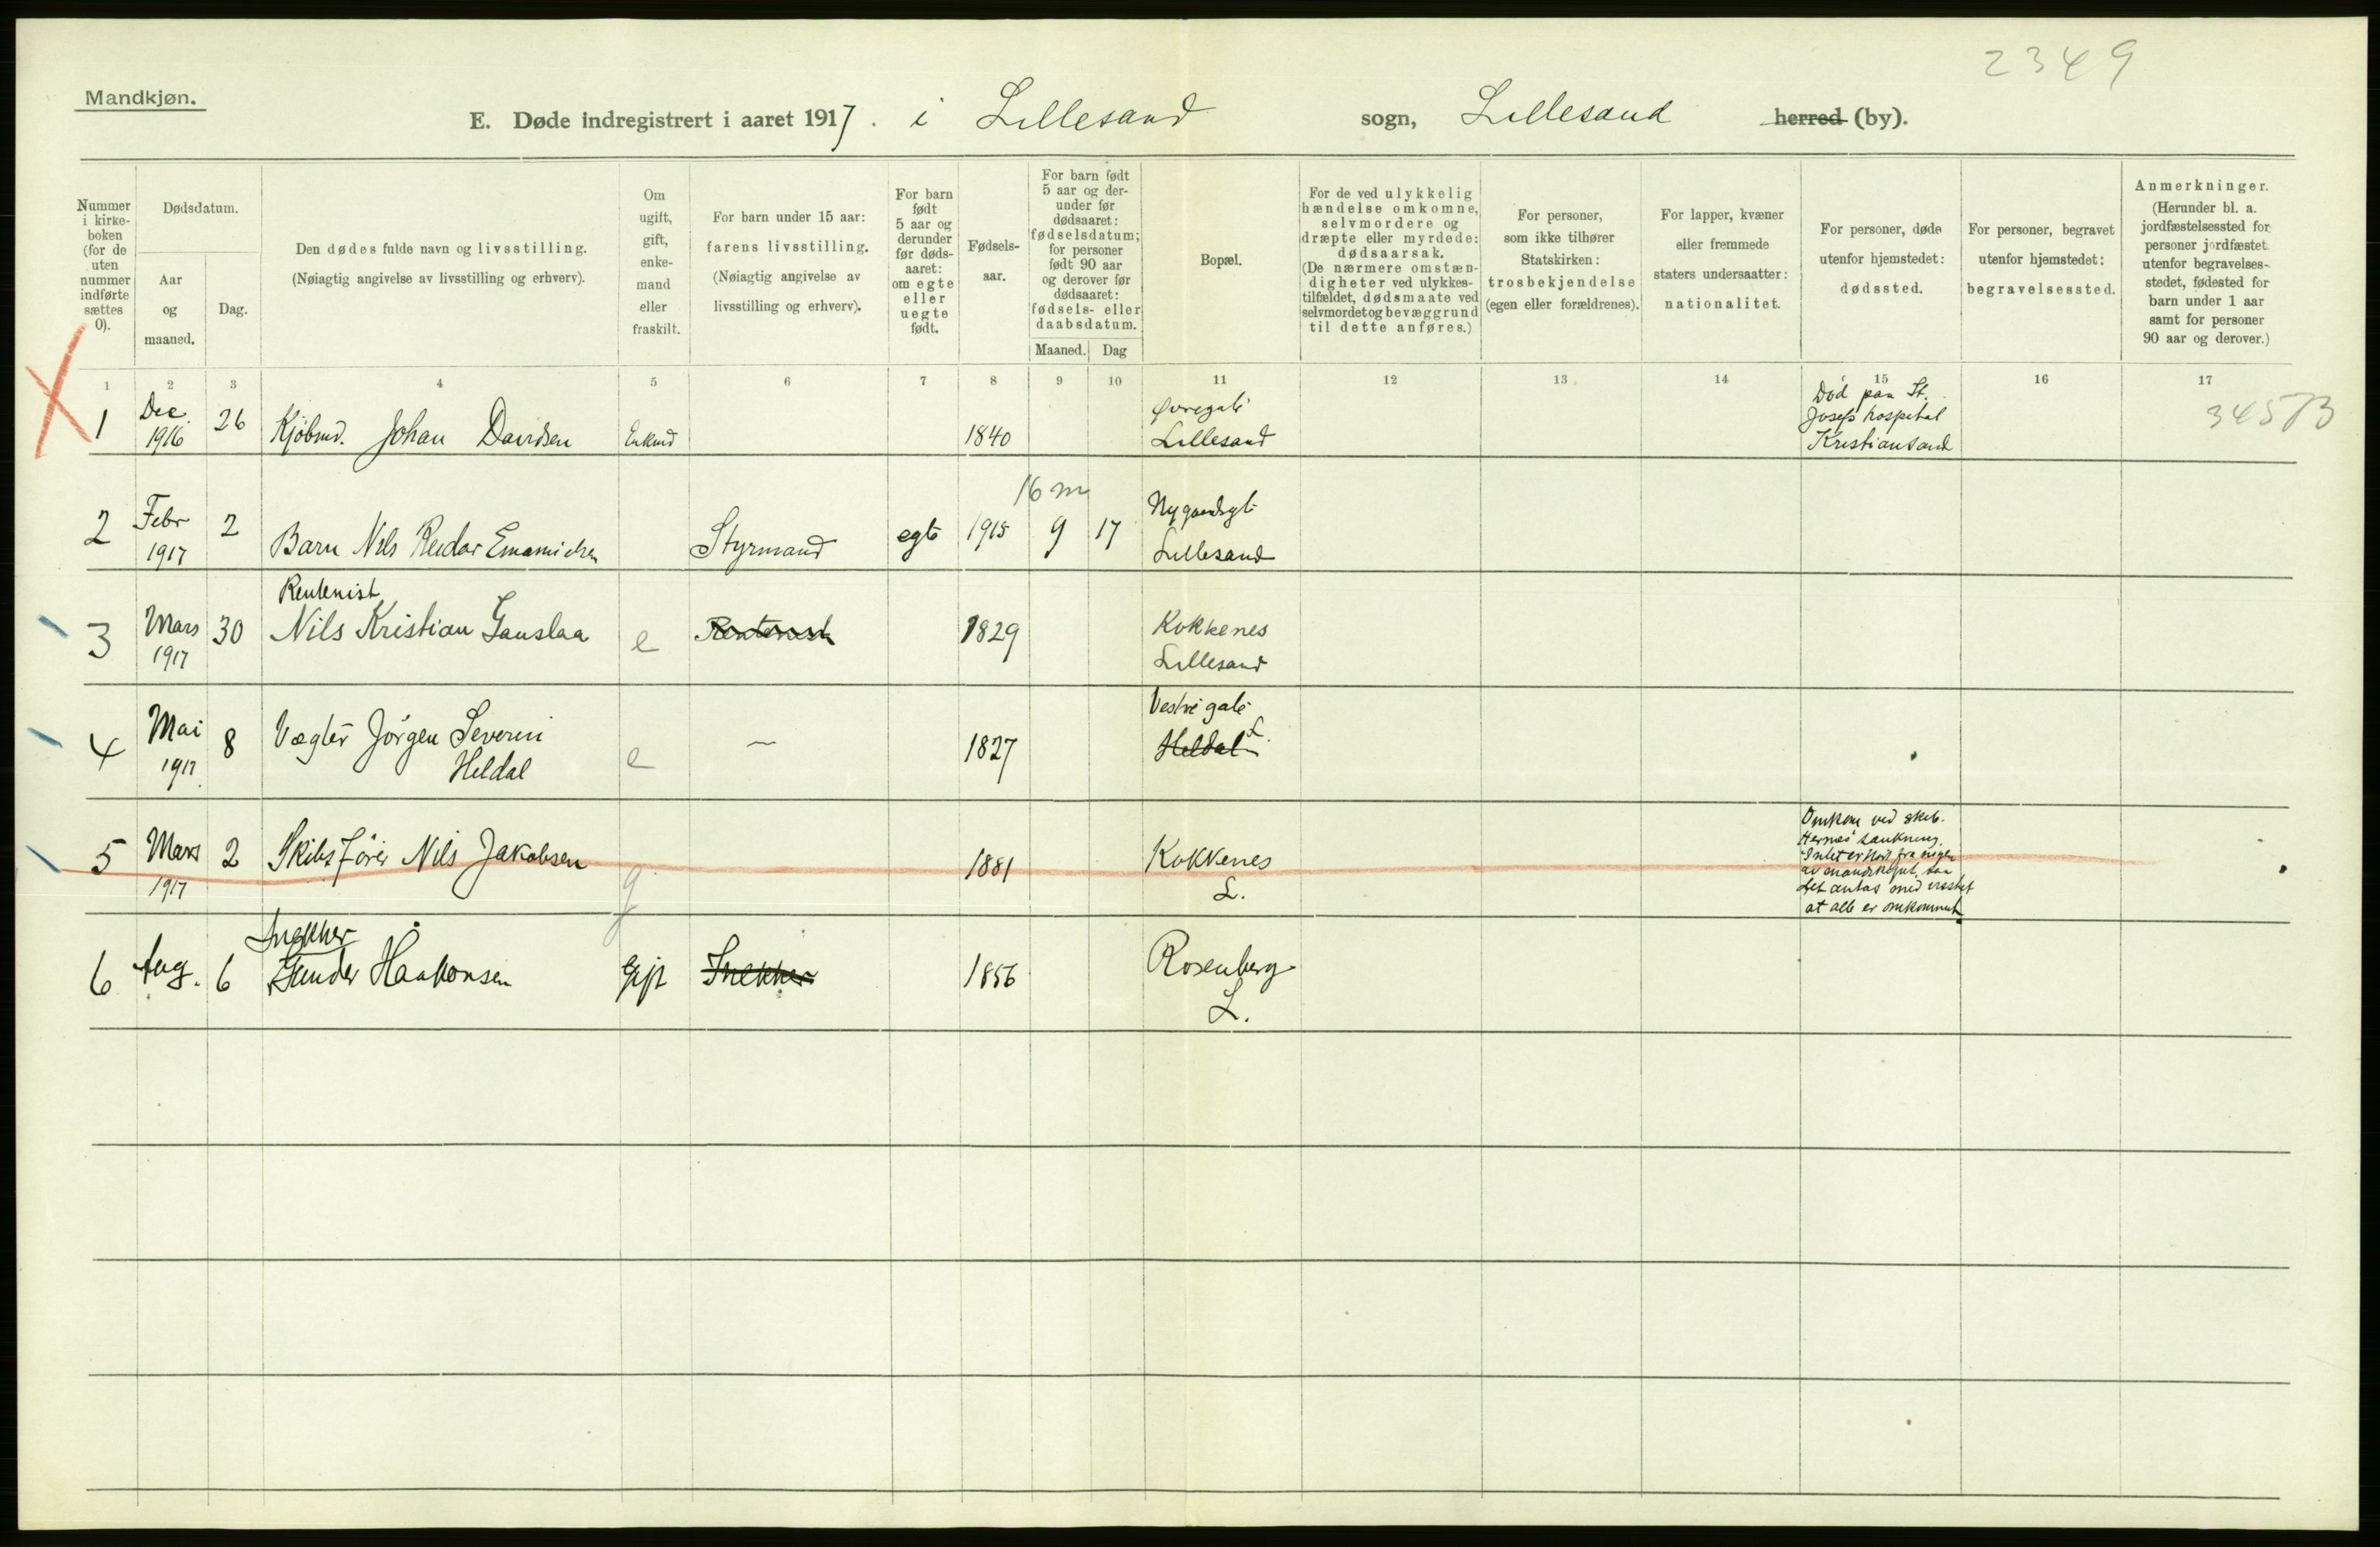 2349
Mandkjøn.
E. Døde indregistrert i aaret 1917. i Lillesand sogn, Lillesand herred (by).
Nummer i kirke- boken (for de uten nummer indførte sættes 0).
Dødsdatum.
Aar og maaned.
Dag.
Den dødes fulde navn og livsstilling.
(Nøiagtig angivelse av livsstilling og erhverv).
Om ugift, gift, enke- mand eller fraskilt.
For barn under 15 aar: farens livsstilling.
(Nøiagtig angivelse av livsstilling og erhverv).
For barn født 5 aar og derunder før døds- aaret: om egte eller uegte født.
Fødsels- aar.
For barn født 5 aar og der- under før dødsaaret: fødselsdatum; for personer født 90 aar og derover før dødsaaret: fødsels- eller daabsdatum.
Maaned. Dag
Bopæl.
For de ved ulykkelig hændelse omkomne, selvmordere og dræpte eller myrdede: dødsaarsak.
(De nærmere omstæn- digheter ved ulykkes- tilfældet, dødsmaate ved selvmordet og bevæggrund til dette anføres.)
For personer, som ikke tilhører Statskirken: trosbekjendelse (egen eller forældrenes).
For lapper, kvæner eller fremmede staters undersaatter: nationalitet.
For personer, døde utenfor hjemstedet: dødssted.
For personer, begravet utenfor hjemstedet: begravelsessted.
Anmerkninger.
(Herunder bl. a. jordfæstelsessted for personer jordfæstet utenfor begravelses- stedet, fødested for barn under 1 aar samt for personer 90 aar og derover.)
1 2 3 4 5 6 7 8 9 10 11 12 13 14 15 16 17
1 Dec. 1916 26 Kjöbmd. Johan Davidsen Enkmd 1840 Øvregate Lillesand Död paa St. Josefs hospital Kristiansand 34573
16 m
2 Febr 1917 2 Barn Nils Reidar Emanuelsen Styrmand egte 1915 9 17 Nygaardsgt Lillesand
Rentenist
3 Mars 1917 30 Nils Kristian Gauslaa e Rentenist 1829 Kokkenes Lillesand
4 Mai 1917. 8 Vægter Jörgen Severin Heldal e — 1827 Vestre gate Heldal L.
5 Mars 1917 2 Skibsförer Nils Jakobsen g 1881 Kokkenes L. Omkom ved skib. Hernæs sænkning. Intet er hört fra nogen av mandskapet, saa det antas med visshet at alle er omkommet
Snekker
6 Aug. 6 Gunder Haakonsen Gift Snekker 1856 Rosenberg L.